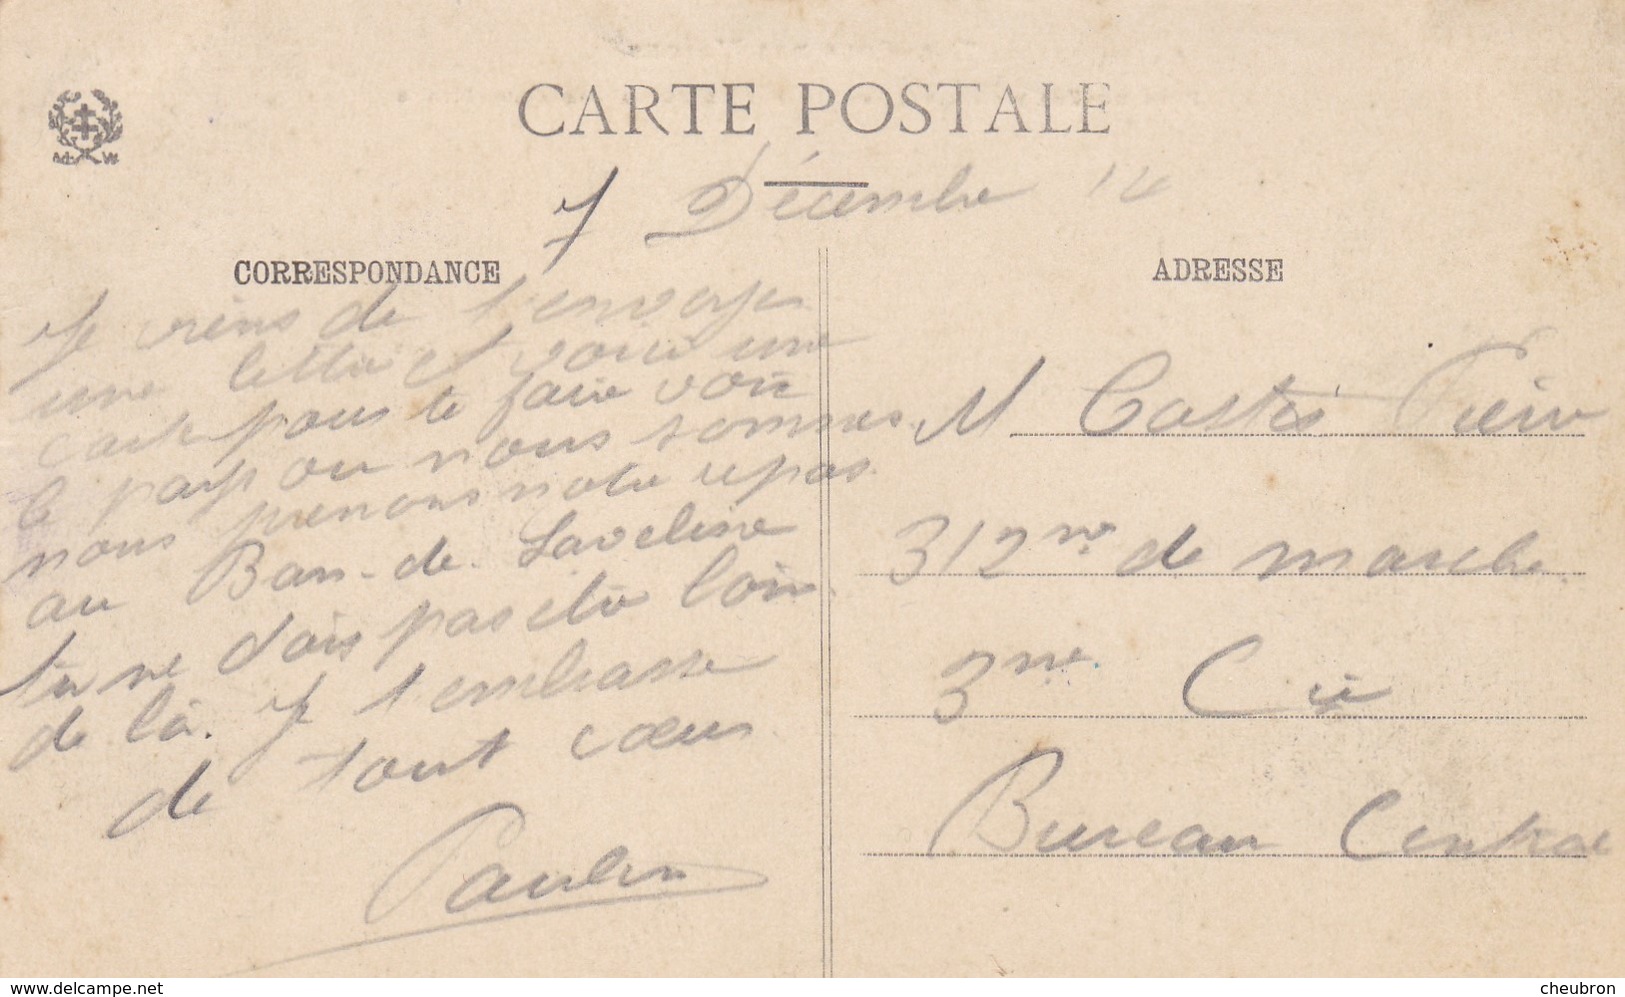 CARTE POSTALE
7 Décembre 14
CORRESPONDANCE
Je viens de t'envoyer
une lettre et voici une
carte pour te faire voir
le pays ou nous sommes
nous prenons notre repas
au Ban-de-Laveline
tu ne dois pas être loin
de là. Je t'embrasse
de tout cœur
Paulin
ADRESSE
M Castes Pierre
312me de marche
3me Cie
Bureau Central
www.delcampe.net
cheubron